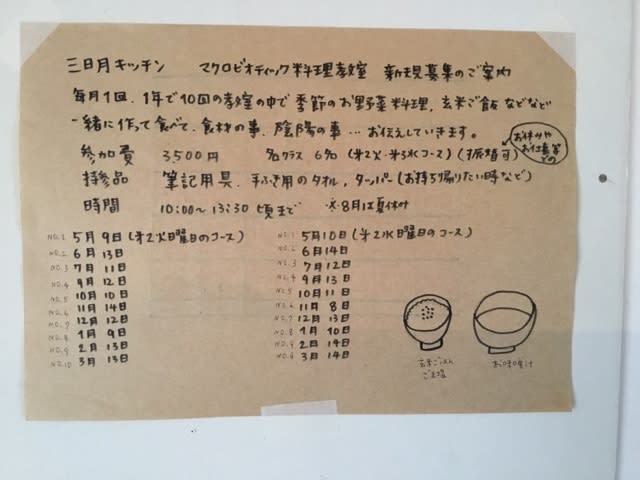 三日月キッチン マクロビオティック料理教室 新規募集のご案内
毎月1回、1年で10回の教室の中で 季節のお野菜料理、玄米ご飯 などなど
一緒に作って食べて、食材の事、陰陽の事… お伝えしていきます。
参加費 3,500円 各クラス 6名 (第2火・第2水コース) (振替可)
お休みや
お仕事等
での
持参品 筆記用具、手ふき用のタオル、タッパー (お持ち帰りたい時など)
時間 10:00〜13:30 頃まで ※8月は夏休み
NO.1 5月9日 (第2火曜日のコース)
NO.2 6月13日
NO.3 7月11日
NO.4 9月12日
NO.5 10月10日
NO.6 11月14日
NO.7 12月12日
NO.8 1月9日
NO.9 2月13日
NO.10 3月13日
NO.1 5月10日 (第2水曜日のコース)
NO.2 6月14日
NO.3 7月12日
NO.4 9月13日
NO.5 10月11日
NO.6 11月8日
NO.7 12月13日
NO.8 1月10日
NO.9 2月14日
3月14日
玄米ごはん
ごま塩
お味噌汁